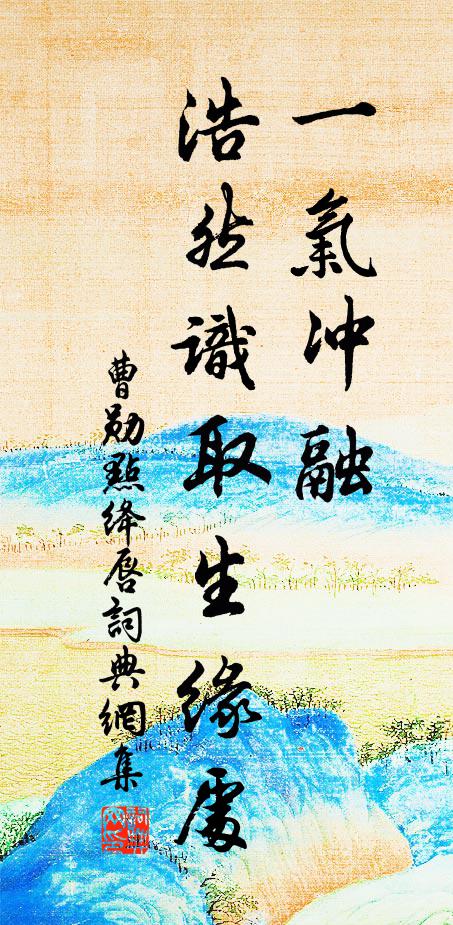 一氣冲融
浩然識取生緣處
曹勛點绛唇詞典網集